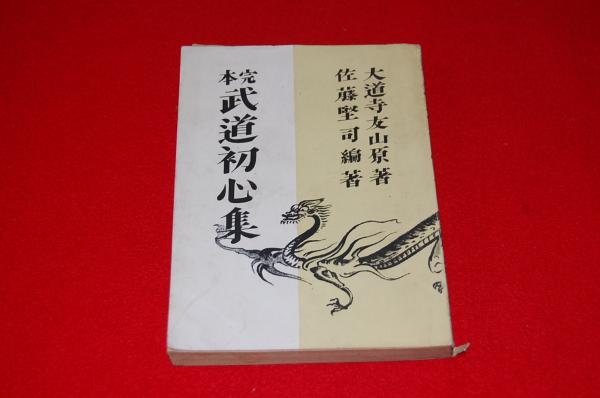 大道寺友山原著
佐藤堅司編著
完本
武道初心集